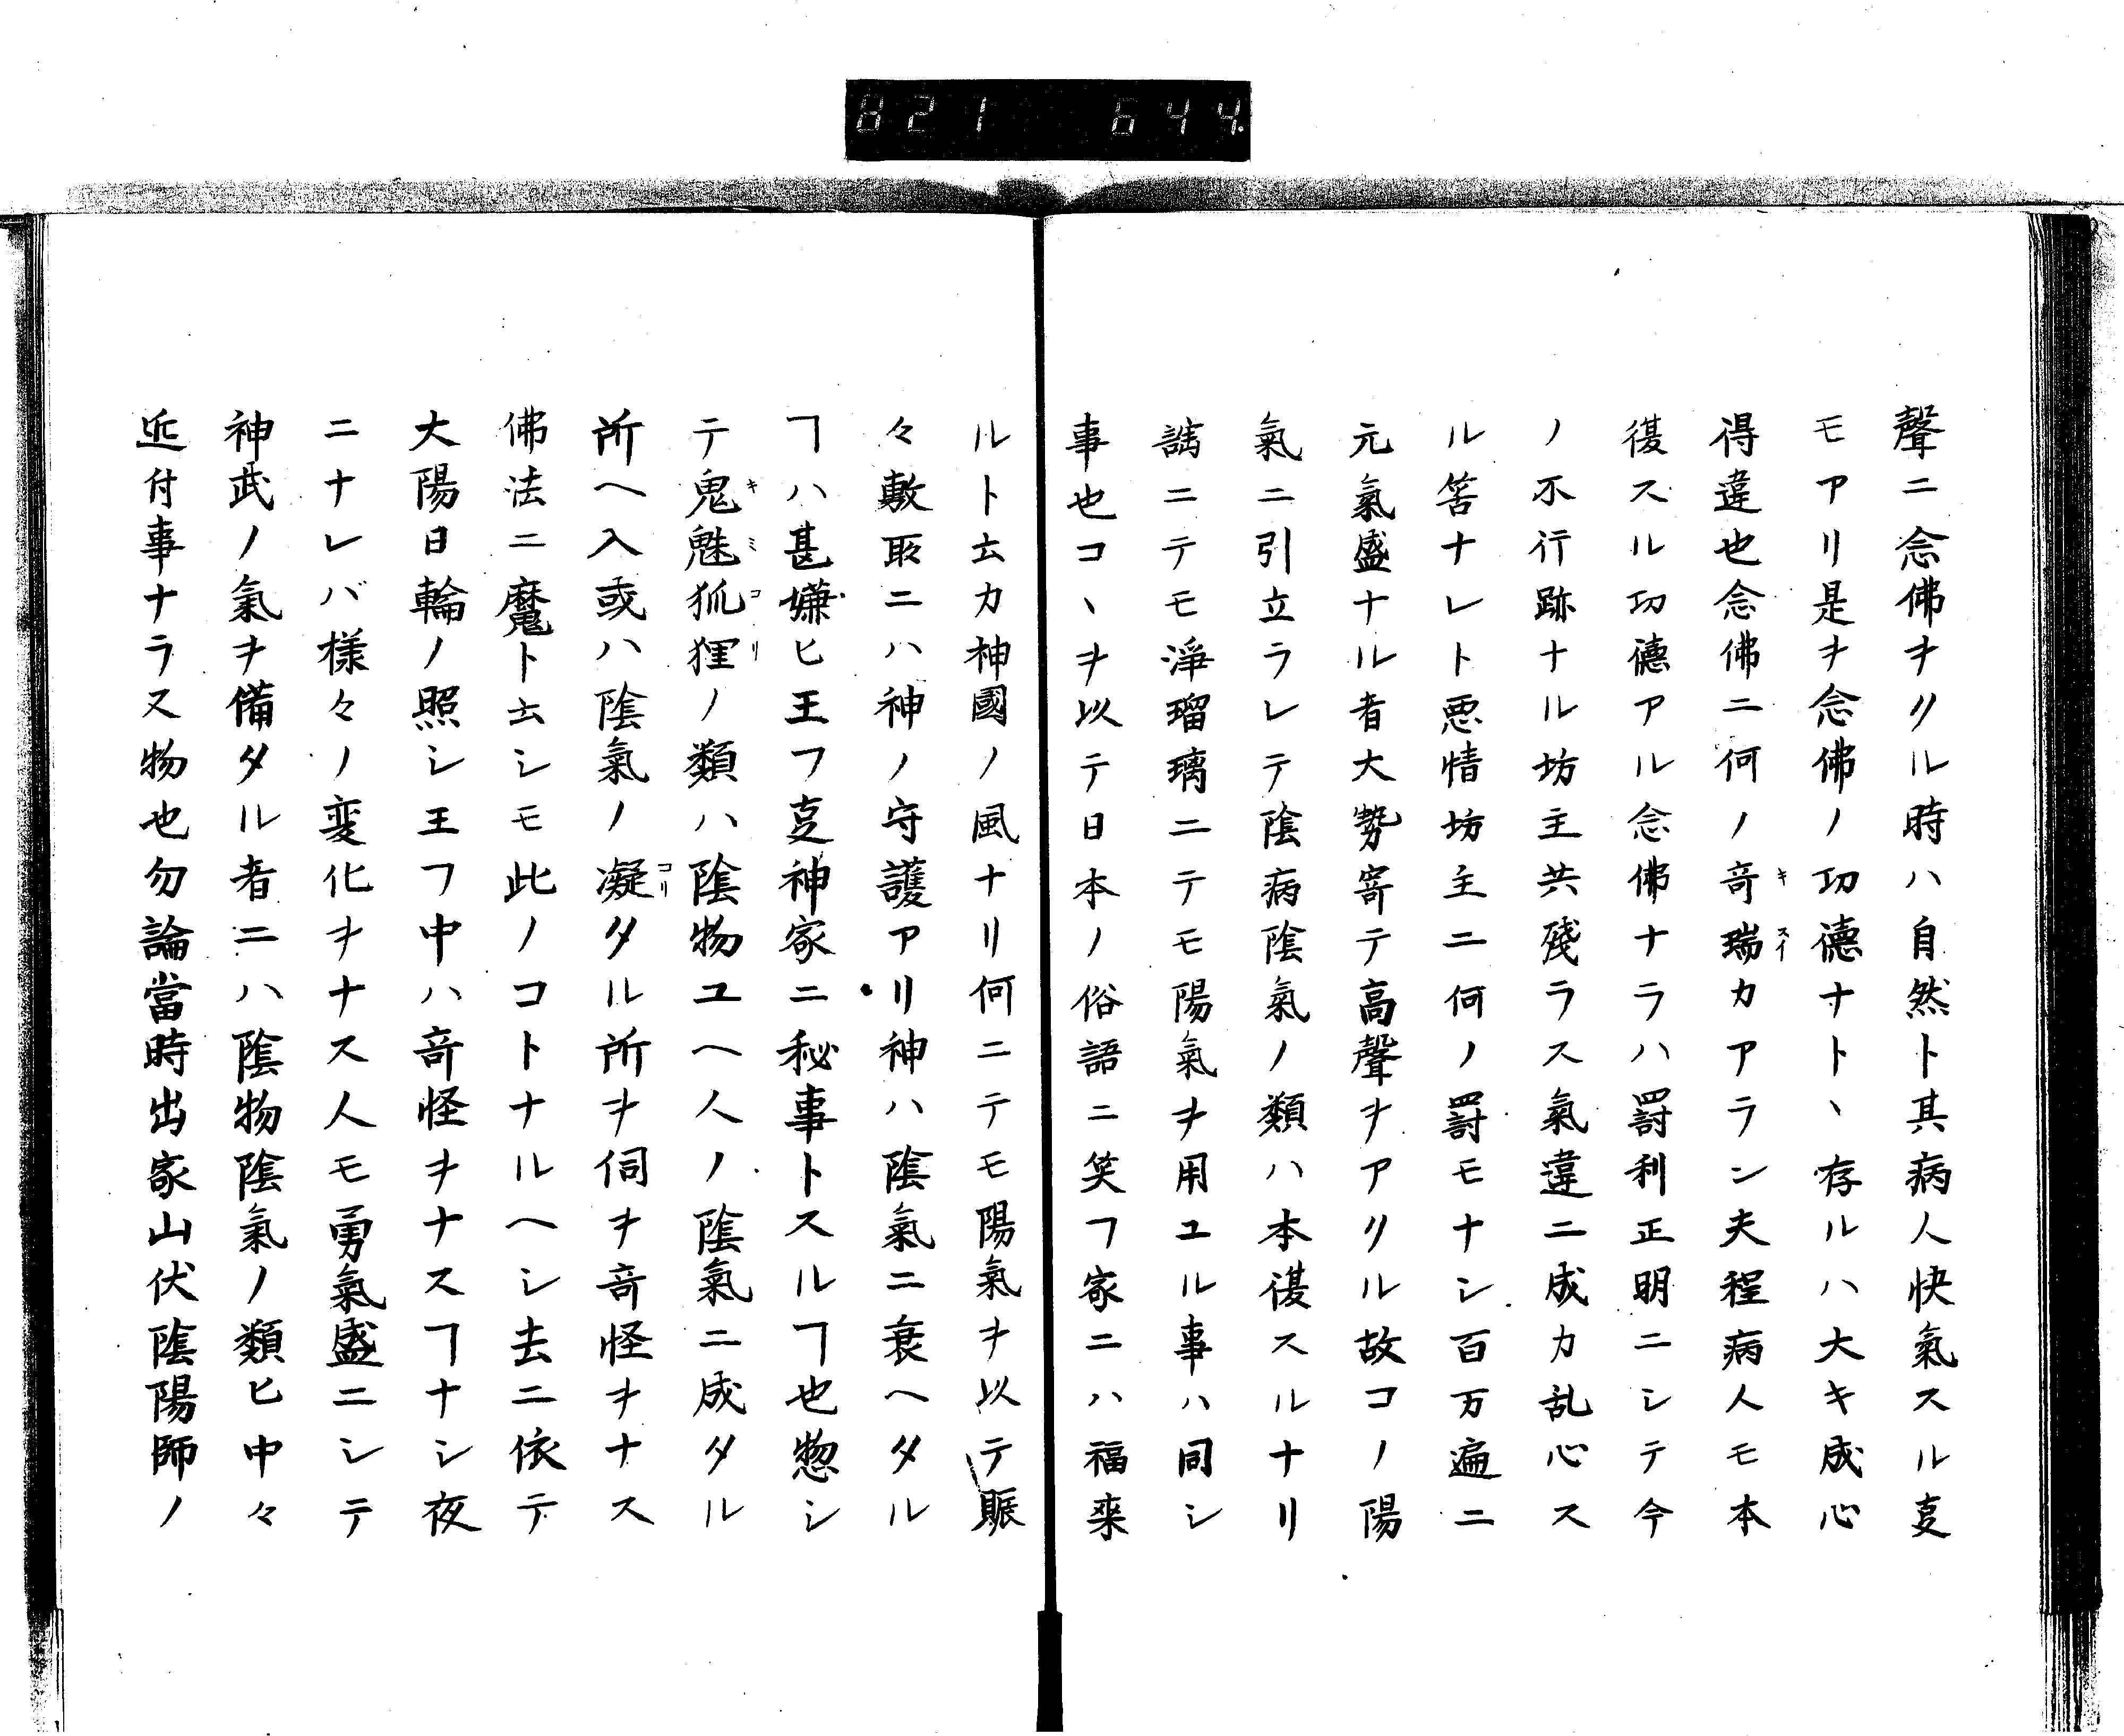 821 644.
聲ニ念佛ヲクル時ハ自然ト其病人快氣スル㕝
モアリ是ヲ念佛ノ功德ナト丶存ルハ大キ成心
得違也念佛ニ何ノ竒瑞カアラン夫程病人モ本
キ
スイ
復スル功德アル念佛ナラハ罸利正明ニシテ今
ノ不行跡ナル坊主共殘ラス氣違ニ成カ乱心ス
ル筈ナレト悪情坊主ニ何ノ罸モナシ百万遍ニ
元氣盛ナル者大勢寄テ高聲ヲアクル故コノ陽
氣ニ引立ラレテ陰病陰氣ノ類ハ本復スルナリ
謡ニテモ淨瑠璃ニテモ陽氣ヲ用ユル事ハ同シ
事也コヽヲ以テ日本ノ俗語ニ笑フ家ニハ福来
ルト云カ神國ノ風ナリ何ニテモ陽氣ヲ以テ賑
々敷取ニハ神ノ守護アリ神ハ陰氣ニ衰ヘタル
ヿハ甚嫌ヒ玉フ㕝神家ニ秘事トスルヿ也惣シ
テ鬼魅狐狸ノ類ハ陰物ユヘ人ノ陰氣ニ成タル
キミコリ
所ヘ入或ハ陰氣ノ凝タル所ヲ伺ヲ竒怪ヲナス
コリ
佛法ニ魔ト云シモ此ノコトナルヘシ去ニ依テ
大陽日輪ノ照シ玉フ中ハ竒怪ヲナスヿナシ夜
ニナレバ様々ノ変化ヲナス人モ勇氣盛ニシテ
神武ノ氣ヲ備タル者ニハ陰物陰氣ノ類ヒ中々
近付事ナラス物也勿論當時出家山伏陰陽師ノ